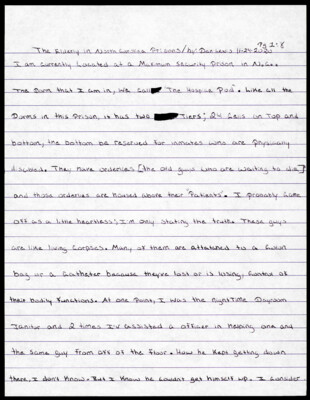 Pg 2:8
The Elderly in North Carolina Prisons/by: Dan Lewis 11-24-2020
I am currently located at a Maximum Security prison in N.C..
The Dorm that I am in, we call "The Hospice Pod". Like all the
Dorms in this prison, it has two Tiers; 24 Cells on Top and
bottom, the bottom be reserved for inmates who are physically
disabled. They have orderlies [the old guys who are waiting to die]
and those orderlies are housed above their "Patients". I probably come
off as a little heartless; I'm only stating the truth. These guys
are like living Corpses. Many of them are attatched to a Colon
bag or a Catheter because they've lost or is losing, Control of
their bodily functions. At one point, I was the nightTime Dayroom
Janitor and 2 times I've assisted a officer in helping one and
the same guy from off of the floor. How he kept getting down
there, I don't know. But I know he couldn't get himself up. I consider